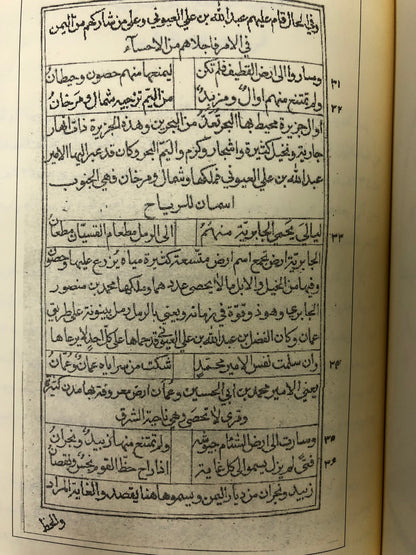 وفي الحال قام عليهم عبد الله بن علي العيوني وعلى من شاركهم من اليمن
في الامر فاجلاهم من الاحساء
وساروا الى ارض القطيف فلم تكن ليمنعها منهم حصون وحيطان ٣١
ولم تمتنع منهم اوال ومزبد من اليم تزجيه شمال ومرخان ٣٢
اوال جزيرة محيط بها البحر تعد من البحرين وهذه الجزيرة ذات انهار
جارية ونخيل كثيرة واشجار وكرم واليم البحر وكان قد عبر اليها الامير
عبد الله بن علي العيوني فملكها وشمال ومرخان فهي الجنوب
اسمان للرياح
ليالي يحمى الجابرية منهم الى الرمل مطعام العشيات مطعان ٣٣
الجابرية ارض يجمع اسم ارض متسعة كثيرة مياه يزرع عليها وحصون
وفيها من الخيل والابل ما لا يحصى عددهم وملكها محمد بن منصور
الجابري وهو ذو قوة في زمانه ويعني بالرمل رمل يبرين على طريق
عمان وكان الفضل بن عبد الله بن علي العيوني قد حماها على كل احد لا يرعاها
وان سلمت نفس الامير محمد شكت من سراياه عمان وعمان ٣٤
يعني الامير محمد بن ابي الحسين وعمان ارض معروفة بها مدن كثيرة
وقرى لا تحصى وهي ناحية الشرق
وسارت الى ارض الشئام جيوشه ولم تمتنع منها زبيد ونجران ٣٥
فتى لم يزل يسمو الى كل غاية اذا راح حظ القوم بخس ونقصان ٣٦
زبيد ونجران من ديار اليمن ويسمو ها هنا يقصد والغاية المراد
والحظ